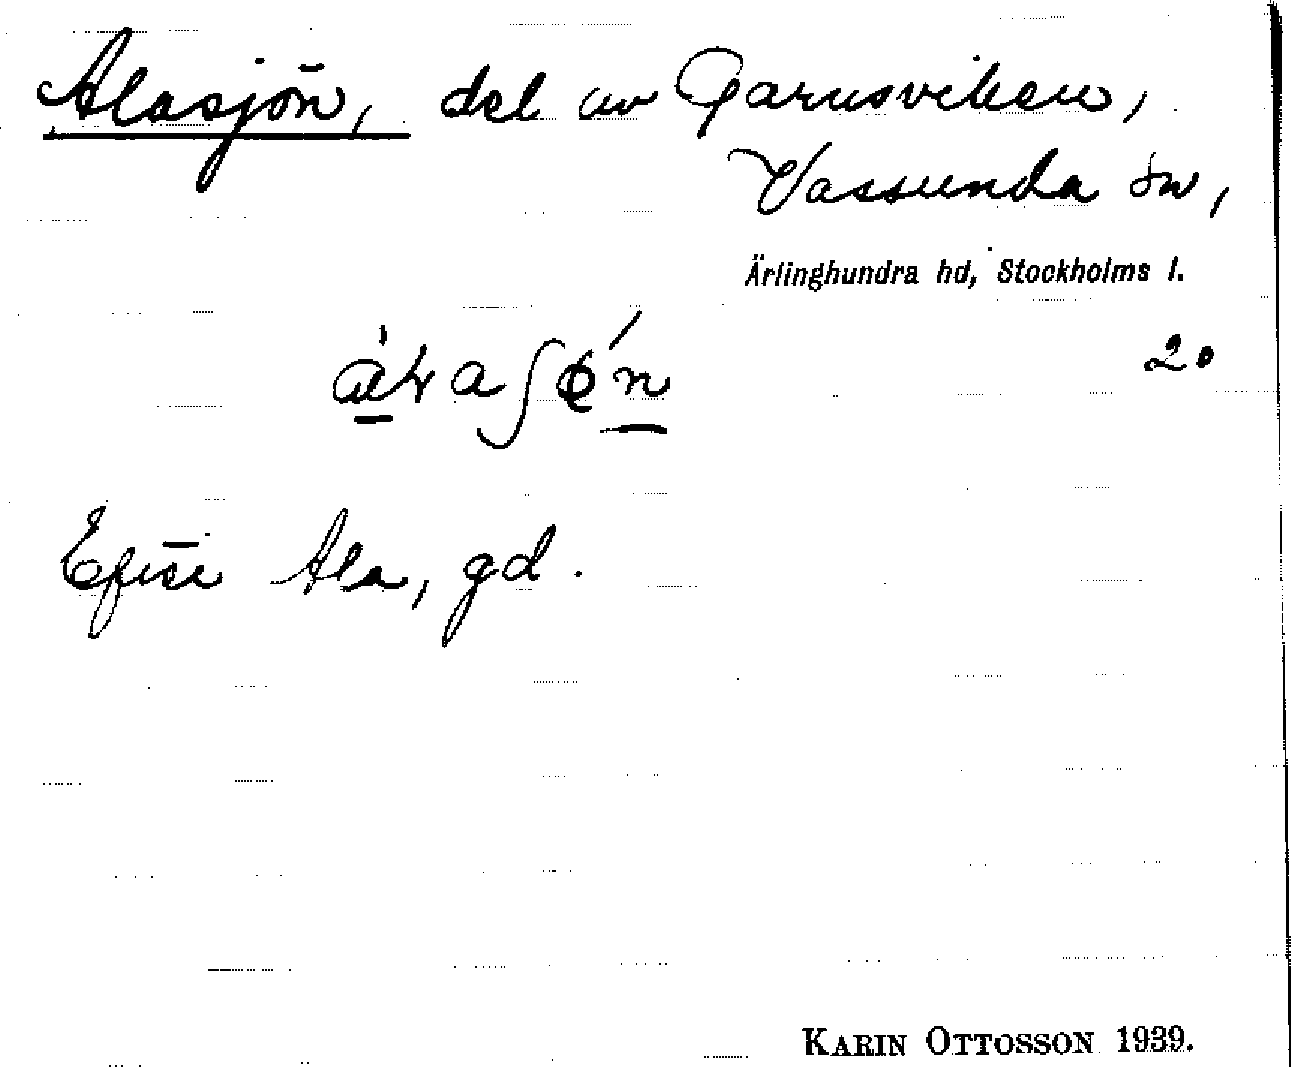 Alasjön, del av Garnsviken,
Vassunda sn,
Ärlinghundra hd, Stockholms l.
20
Efter Ala, gd.
KARIN OTTOSSON 1939.